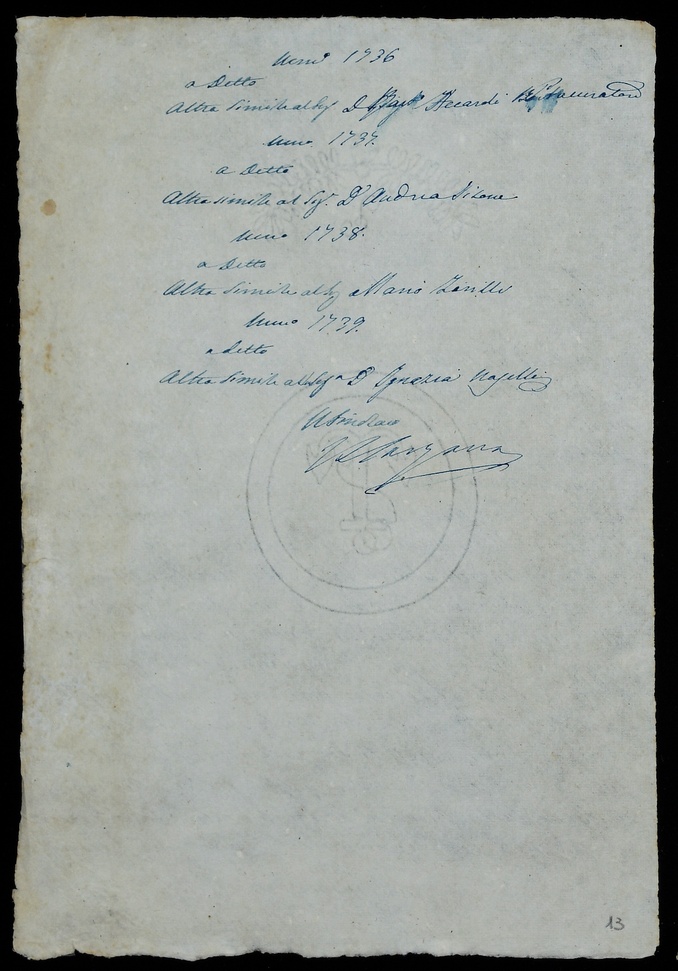 Anno 1736
a Detto
Altra Simile al Sig.r D. Accardi Procuratore
Anno 1737.
a Detto
Altra simile al Sig.r D. Andrea Pisane
Anno 1738.
a Detto
Altra Simile al Sig.r Mario Zarillo
Anno 1739.
a detto
Altra Simile alla Sig.a D. Ignazia
Il Sindaco
13